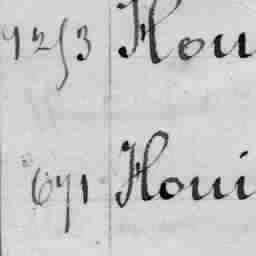 1253 Hou
671 Houi